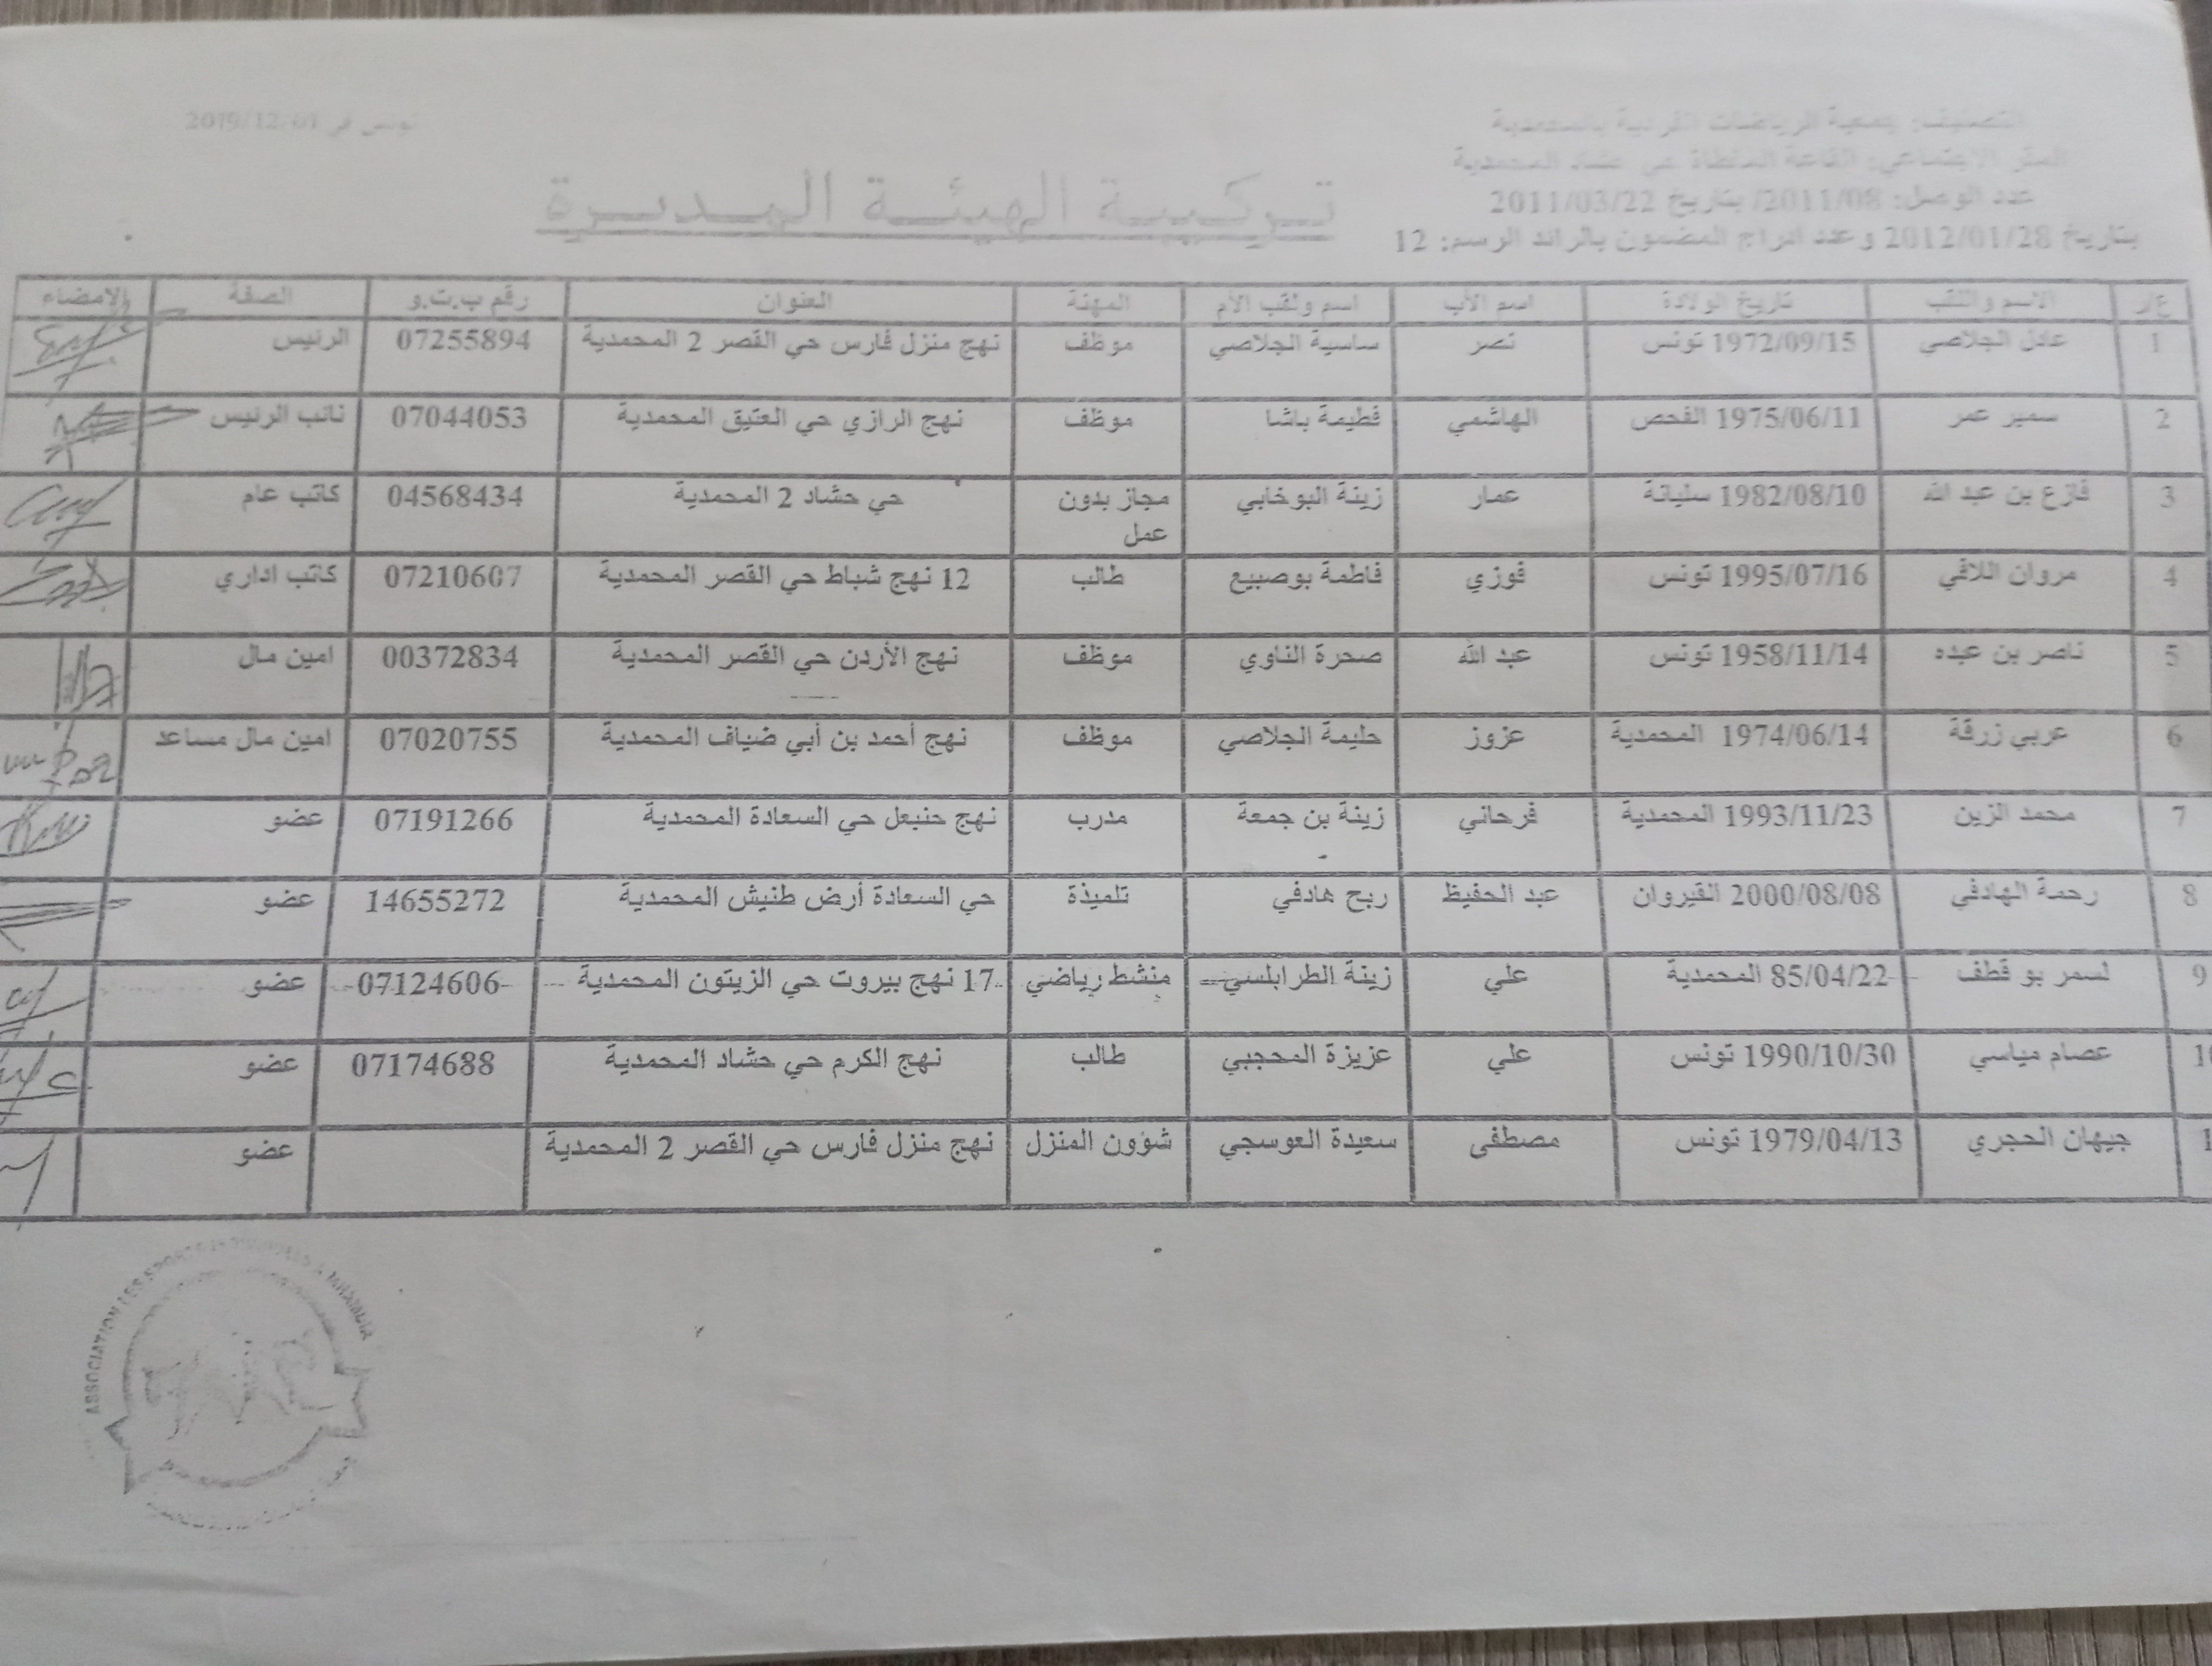 التصنيف: جمعية الرياضات الفردية بالمحمدية
تونس في 2019/12/01
المقر الاجتماعي: القاعة المغطاة حي حشاد المحمدية
عدد الوصل: 2011/08/ بتاريخ 2011/03/22
بتاريخ 2012/01/28 وعدد ادراج المضمون بالرائد الرسم: 12
تركيبة الهيئة المديرة
ع/ر الاسم واللقب تاريخ الولادة اسم الأب اسم ولقب الأم المهنة العنوان رقم ب.ت.و الصفة الامضاء
1 عادل الجلاصي 1972/09/15 تونس نصر ساسية الجلاصي موظف نهج منزل فارس حي القصر 2 المحمدية 07255894 الرئيس
2 سمير عمر 1975/06/11 الفحص الهاشمي فطيمة باشا موظف نهج الرازي حي العتيق المحمدية 07044053 نائب الرئيس
3 فازع بن عبد الله 1982/08/10 سليانة عمار زينة البوخابي مجاز بدون عمل حي حشاد 2 المحمدية 04568434 كاتب عام
4 مروان اللافي 1995/07/16 تونس فوزي فاطمة بوصبيع طالب 12 نهج شباط حي القصر المحمدية 07210607 كاتب اداري
5 ناصر بن عبده 1958/11/14 تونس عبد الله صحرة الناوي موظف نهج الأردن حي القصر المحمدية 00372834 امين مال
6 عربي زرقة 1974/06/14 المحمدية عزوز حليمة الجلاصي موظف نهج أحمد بن أبي ضياف المحمدية 07020755 امين مال مساعد
7 محمد الزين 1993/11/23 المحمدية فرحاني زينة بن جمعة مدرب نهج حنبعل حي السعادة المحمدية 07191266 عضو
8 رحمة الهادفي 2000/08/08 القيروان عبد الحفيظ ربح هادفي تلميذة حي السعادة أرض طنيش المحمدية 14655272 عضو
9 لسمر بو قطف 85/04/22 المحمدية علي زينة الطرابلسي منشط رياضي 17 نهج بيروت حي الزيتون المحمدية 07124606 عضو
10 عصام مياسي 1990/10/30 تونس علي عزيزة المحجبي طالب نهج الكرم حي حشاد المحمدية 07174688 عضو
1 جيهان الحجري 1979/04/13 تونس مصطفى سعيدة العوسجي شؤون المنزل نهج منزل فارس حي القصر 2 المحمدية عضو
ASSOCIATION LES SPORTS